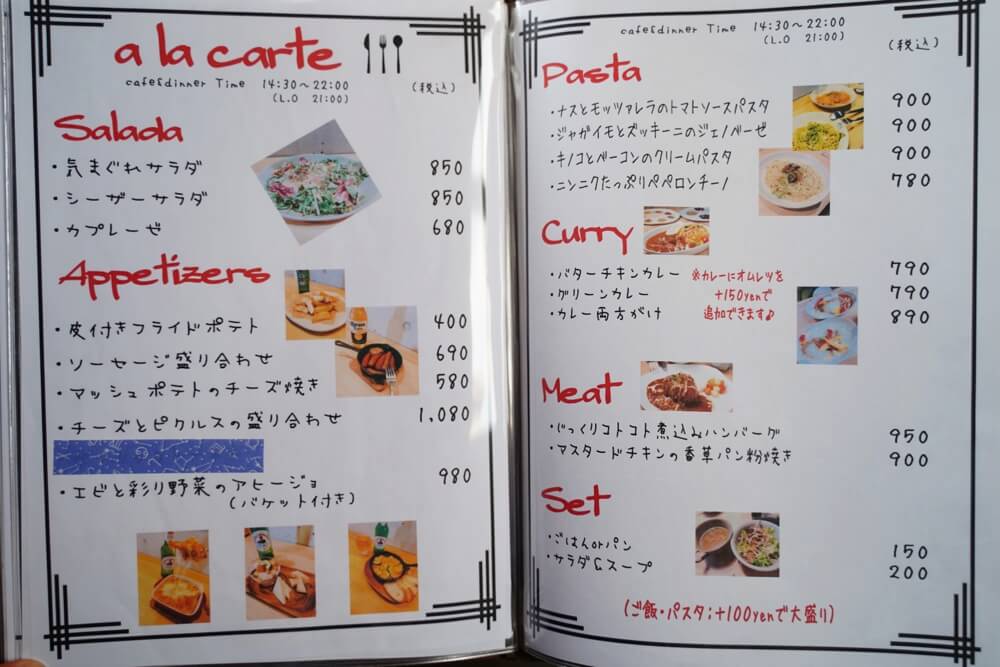 a la carte
cafe&dinner Time 14:30~22:00
(L.O 21:00)
(税込)
Salada
・気まぐれサラダ 850
・シーザーサラダ 850
・カプレーゼ 680
Appetizers
・皮付きフライドポテト 400
・ソーセージ盛り合わせ 690
・マッシュポテトのチーズ焼き 580
・チーズとピクルスの盛り合わせ 1,080
・エビと彩り野菜のアヒージョ 980
(バケット付き)
cafe&dinner Time 14:30~22:00
(L.O 21:00)
(税込)
Pasta
・ナスとモッツァレラのトマトソースパスタ 900
・ジャガイモとズッキーニのジェノベーゼ 900
・キノコとベーコンのクリームパスタ 900
・ニンニクたっぷりペペロンチーノ 780
Curry
・バターチキンカレー 790
・グリーンカレー 790
・カレー両方がけ 890
※カレーにオムレツを
+150yenで
追加できます♪
Meat
・じっくりコトコト煮込みハンバーグ 950
・マスタードチキンの香草パン粉焼き 900
Set
・ごはんorパン 150
・サラダ&スープ 200
(ご飯・パスタ;+100yenで大盛り)